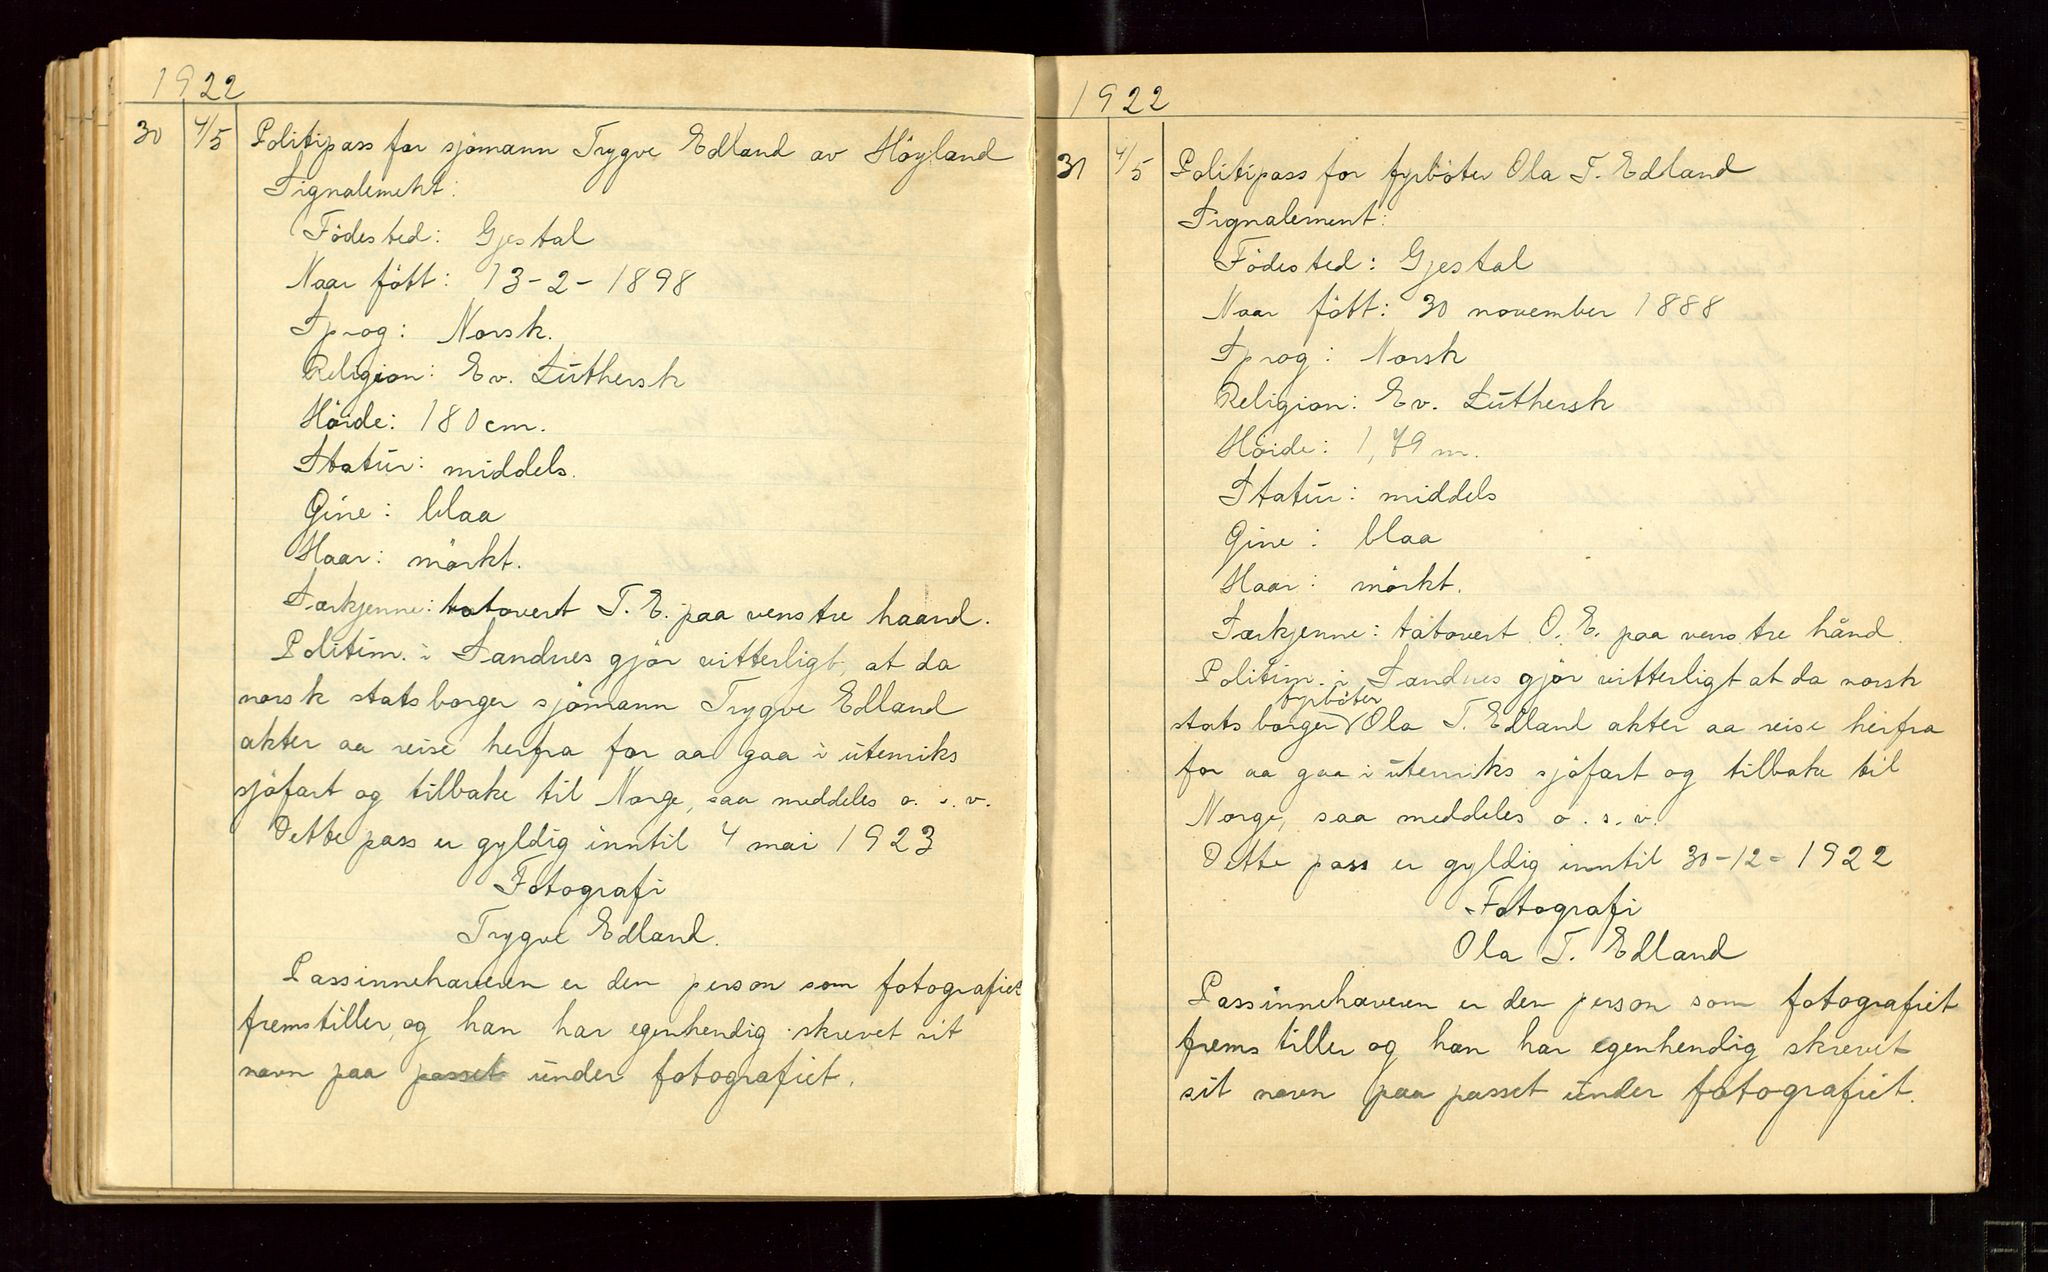 1922
30 4/5 Politipass for sjömann Trygve Edland av Höyland
Signalement:
Födested: Gjestal
Naar fött: 13-2-1898
Sprog: Norsk.
Religion: Ev. Luthersk
Höide: 180 cm.
Statur: middels.
Öine: blaa
Haar: mörkt.
Særkjenne: tatovert T. E. paa venstre haand.
Politim. i Sandnes gjör vitterligt at da
norsk statsborger sjömann Trygve Edland
akter aa reise herfra for aa gaa i utenriks
sjöfart og tilbake til Norge, saa meddeles o. s. v.
Dette pass er gyldig inntil 4 mai 1923
Fotografi
Trygve Edland.
Passinnehaveren er den person som fotografiet
fremstiller, og han har egenhendig skrevet sit
navn paa passet under fotografiet.
1922
31 4/5 Politipass for fyrböter Ola T. Edland
Signalement:
Födested: Gjestal
Naar fött: 30 november 1888
Sprog: Norsk
Religion: Ev. Luthersk
Höide: 1,79 m.
Statur: middels
Öine: blaa
Haar: mörkt.
Særkjenne: tatovert O. E. paa venstre hånd.
Politim. i Sandnes gjör vitterligt at da norsk
fyrböter
statsborger Ola T. Edland akter aa reise herfra
for aa gaa i utenriks sjöfart og tilbake til
Norge, saa meddeles o. s. v.
Dette pass er gyldig inntil 30-12-1922
Fotografi
Ola T. Edland
Passinnehaveren er den person som fotografiet
fremstiller og han har egenhendig skrevet
sit navn paa passet under fotografiet.